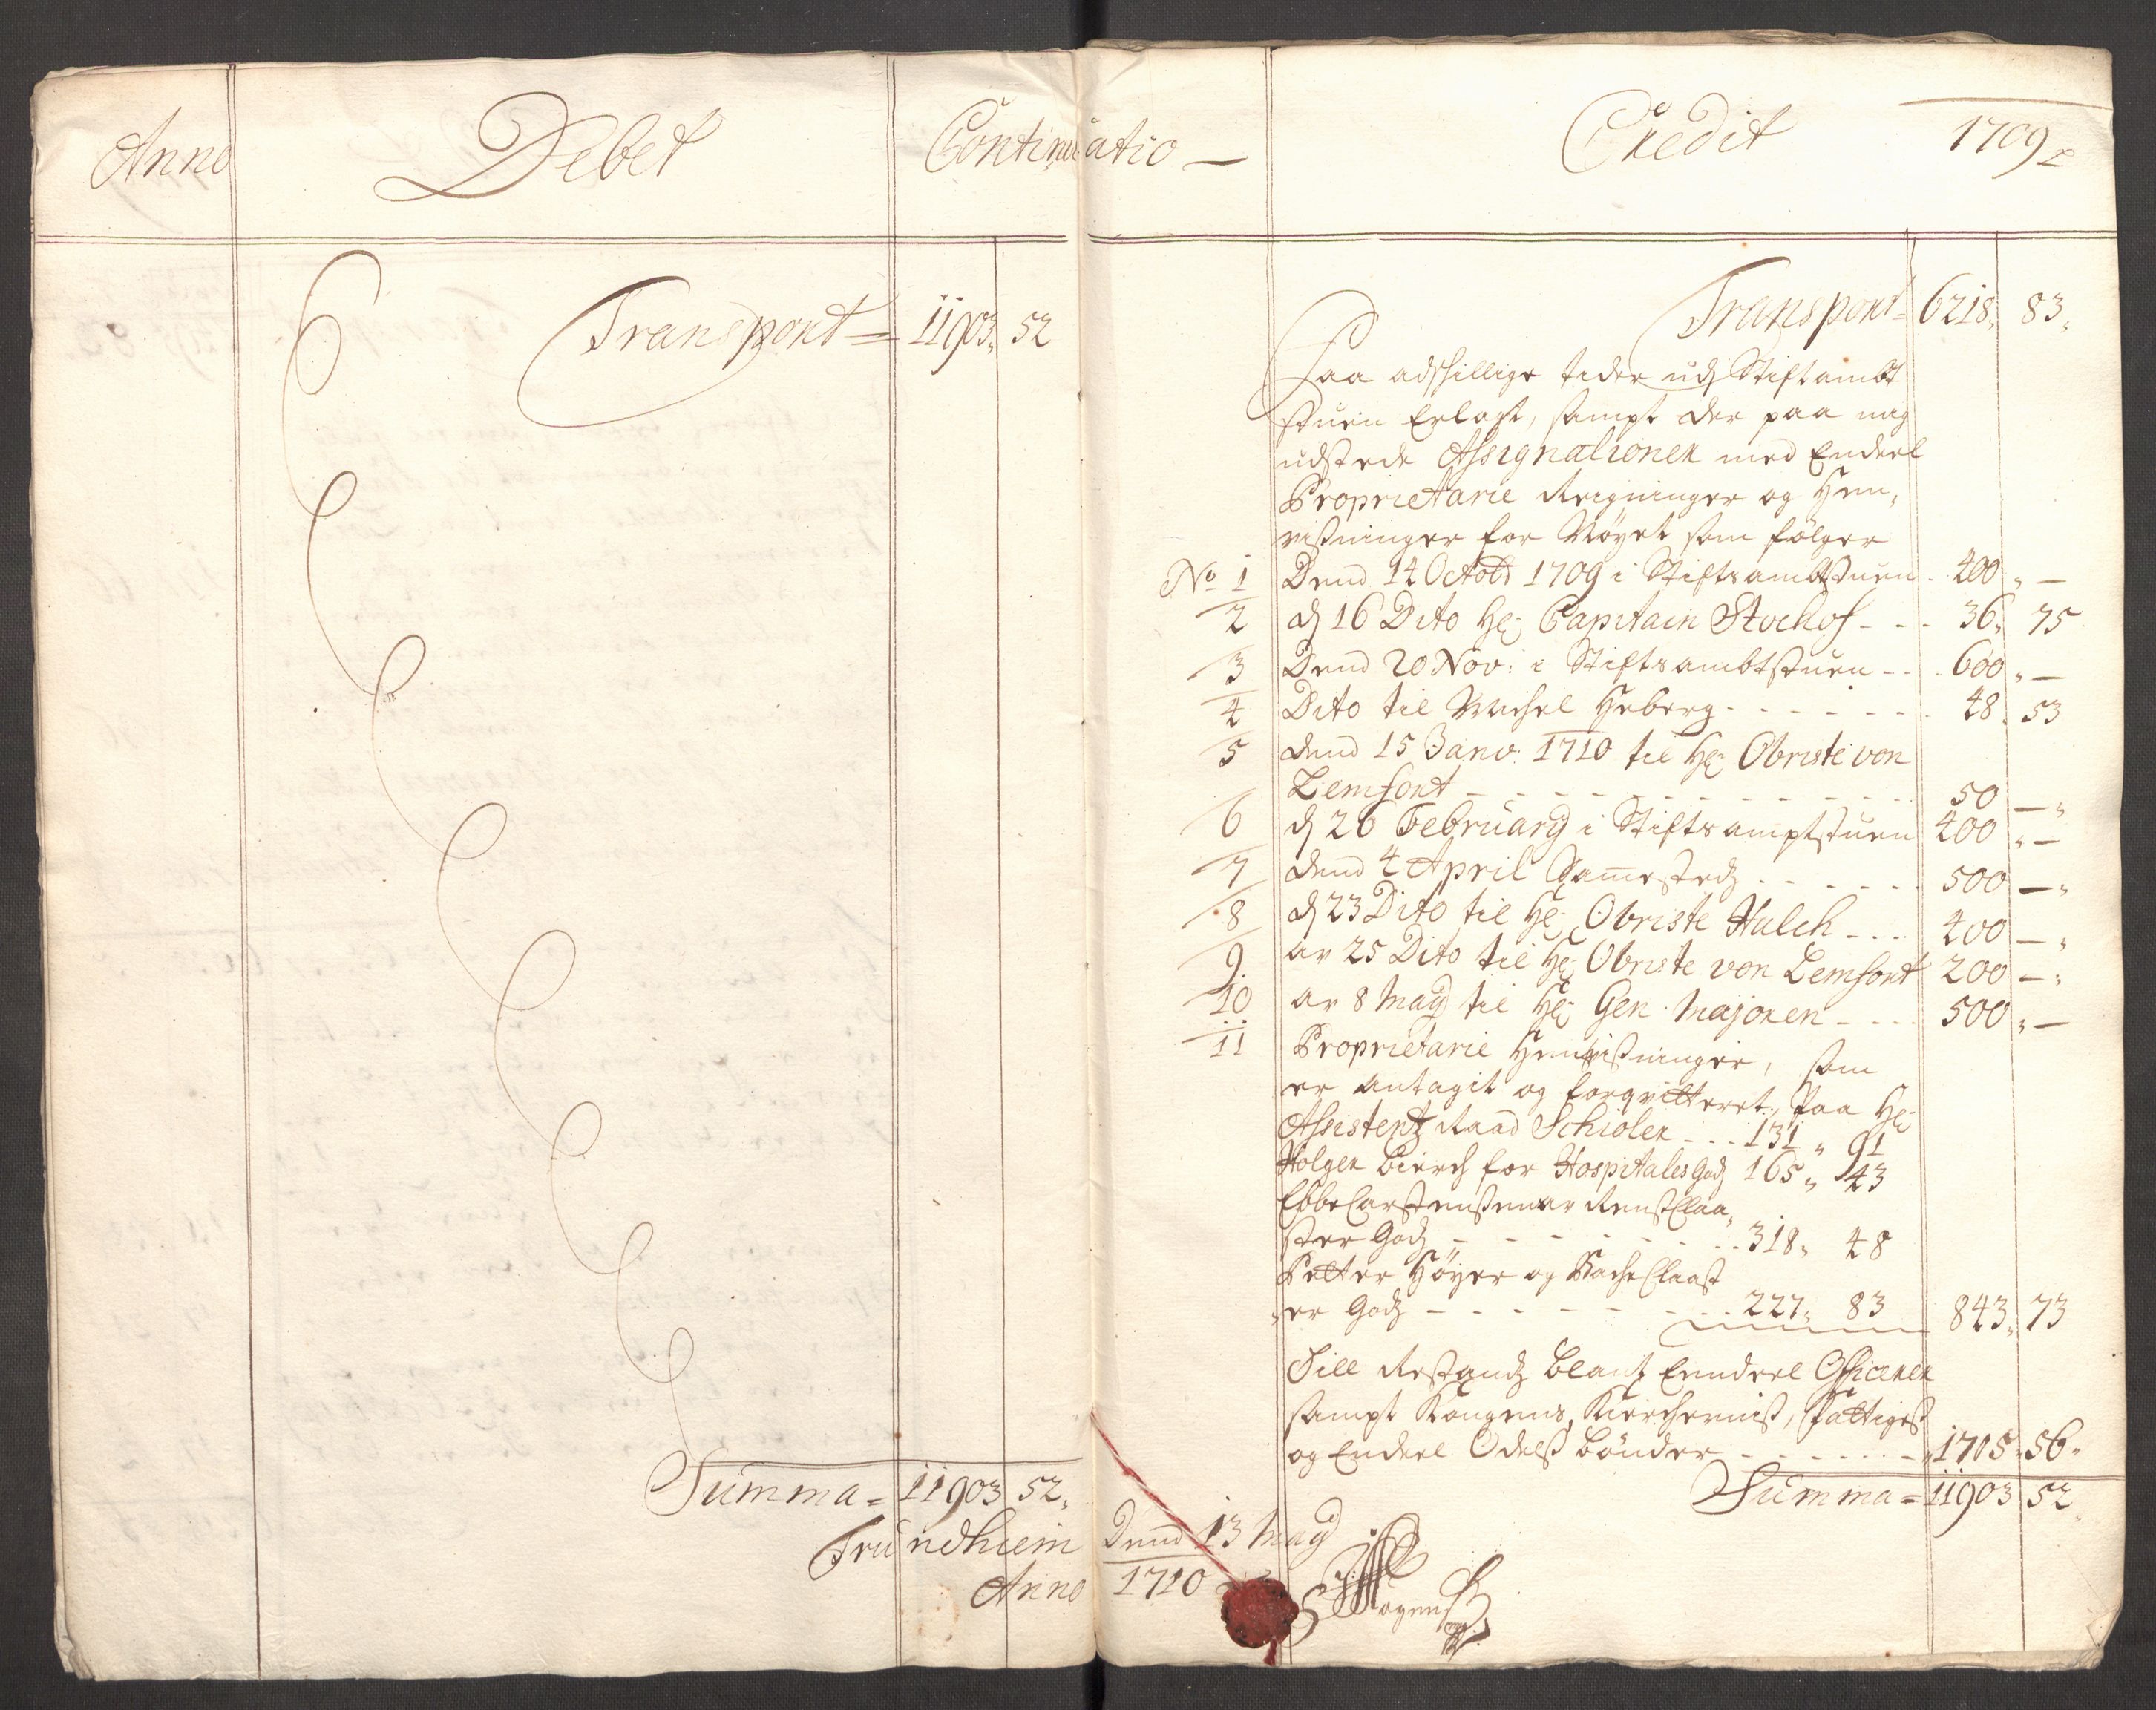 Anno Debet Continuatio — Credit 1709
Transport = 11903„ 52
Transport = 6218„ 83„
Paa adskillige tider udj Stiftambt
stuen Erlagt, sampt der paa mig
udstede Assignationer med Endeel
Proprietarie Reigninger og Hen„
visninger for Nøyet som følger
No 1 Dend 14 Octobr 1709 i Stiftsambtstuen - 400 „ —
2 d 16 Dito Hr Capitain Stochof - - - 36„ 75
3 Dend 20 Nov: i Stiftsambtstuen - - - 600 „ —
4 Dito til Michel Heberg - - - - - - 48„ 53
5 Dend 15 Janv: 1710 til Hr Obriste von
Lemfort - - - - - - - - - - 50 — „
6 d 26 February i Stiftsamptstuen 400 „ —
7 Dend 4 April Samestedz - - - - - - 500 — „
8 d 23 Dito til Hr Obriste Halch - - - 400 — „
9 av 25 Dito til Hr Obriste von Lemfort 200 — „
10 av 8 May til Hr Gen: Majoren - - - 500 „ —
11 Proprietarie Henvisninger, som
er antagit og forqvitteret, Paa Hr
Assistentz Raad Schioler - - - 131 „ 91
Holger Bierch for Hospitales Godz 165 „ 43
Ebbe Carstensen av Renss Claa„
ster Godz - - - - - - - 318„ 48
Petter Høyer og Bache Claast
„er Godz - - - - - - - 227„ 83 843„ 73
Till Restandz blant Enndeel Officerer
sampt Kongens, Kierchernis, Fattiges
og Endeel Odels bønder - - - - - - 1705„ 56„
Summa = 11903 52„
Summa = 11903 52„
Trundhiem Dend 13 May
Anno 1710